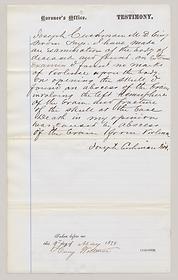 Coroner's Office. TESTIMONY.
Joseph Cushman M.D. being
sworn says I have made
an examination of the body of
deceased and found no
marks
of violence upon the body.
On opening the skull I
found an abscess of the brain
involving the left hemisphere
of the brain and fracture
of the skull at the base
Death in my opinion
was caused by abscess
of the brain from violence
Joseph Cushman M.D.
Taken before me
this day of May 1871
CORONER.